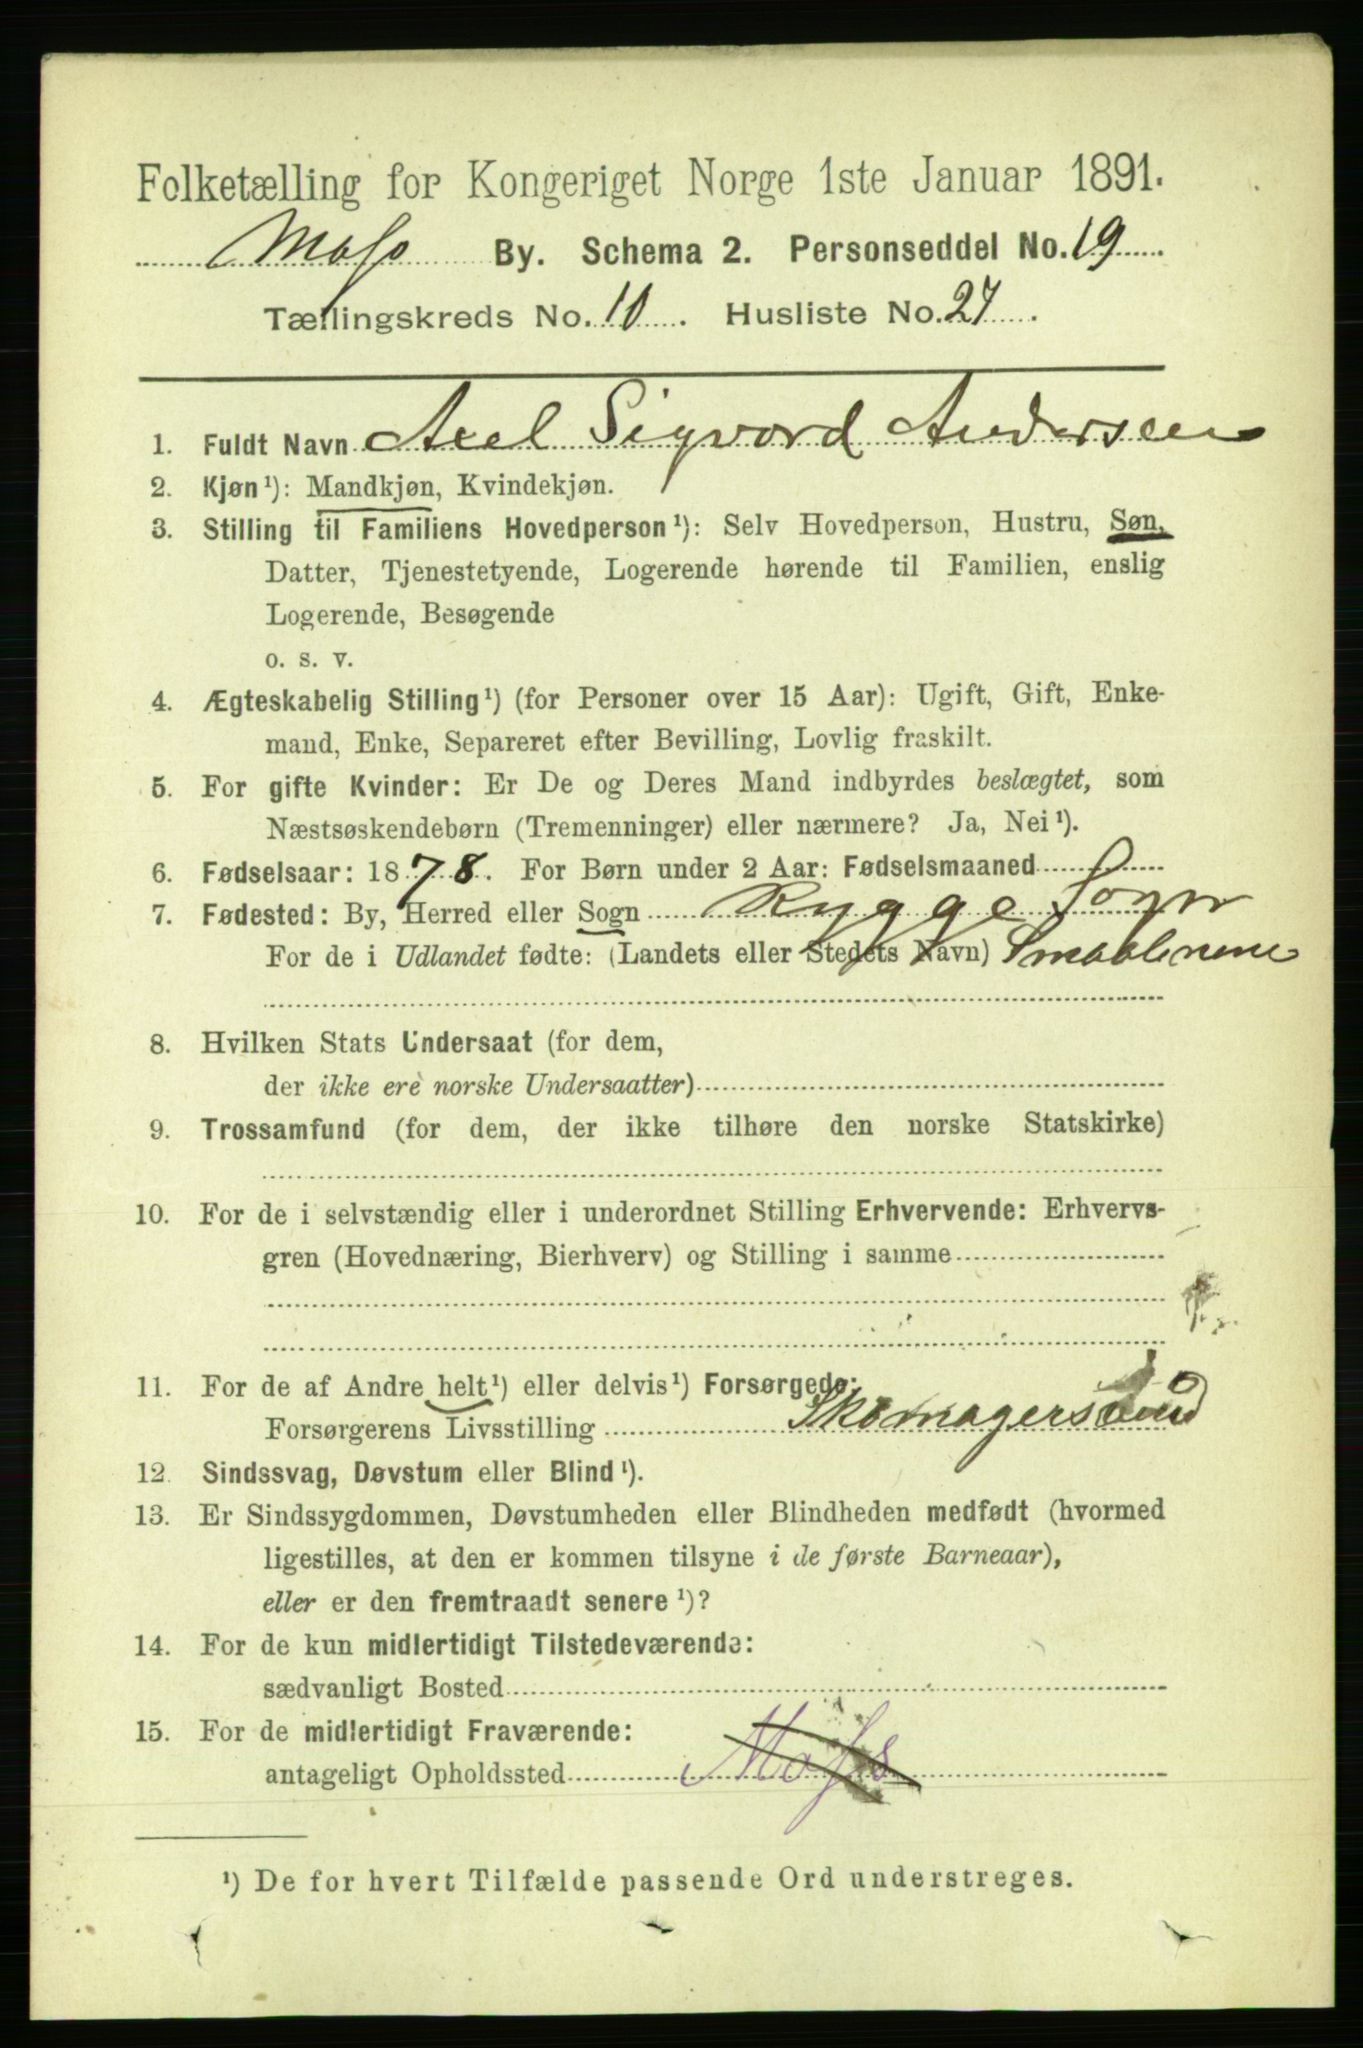 Folketælling for Kongeriget Norge 1ste Januar 1891.
Moss By. Schema 2. Personseddel No. 19
Tællingskreds No. 10. Husliste No. 27.
1. Fuldt Navn Axel Sigvord Andersen
2. Kjøn¹): Mandkjøn, Kvindekjøn.
3. Stilling til Familiens Hovedperson¹): Selv Hovedperson, Hustru, Søn,
Datter, Tjenestetyende, Logerende hørende til Familien, enslig
Logerende, Besøgende
o. s. v.
4. Ægteskabelig Stilling¹) (for Personer over 15 Aar): Ugift, Gift, Enke-
mand, Enke, Separeret efter Bevilling, Lovlig fraskilt.
5. For gifte Kvinder: Er De og Deres Mand indbyrdes beslægtet, som
Næstsøskendebørn (Tremenninger) eller nærmere? Ja, Nei¹).
6. Fødselsaar: 1878. For Børn under 2 Aar: Fødselsmaaned
7. Fødested: By, Herred eller Sogn Rygge Sogn
For de i Udlandet fødte: (Landets eller Stedets Navn) Smaalenene
8. Hvilken Stats Undersaat (for dem,
der ikke ere norske Undersaatter)
9. Trossamfund (for dem, der ikke tilhøre den norske Statskirke)
10. For de i selvstændig eller i underordnet Stilling Erhvervende: Erhvervs-
gren (Hovednæring, Bierhverv) og Stilling i samme
11. For de af Andre helt¹) eller delvis¹) Forsørgede:
Forsørgerens Livsstilling Skomagersvend
12. Sindssvag, Døvstum eller Blind¹).
13. Er Sindssygdommen, Døvstumheden eller Blindheden medfødt (hvormed
ligestilles, at den er kommen tilsyne i de første Barneaar),
eller er den fremtraadt senere¹)?
14. For de kun midlertidigt Tilstedeværende:
sædvanligt Bosted
15. For de midlertidigt Fraværende:
antageligt Opholdssted Moss
¹) De for hvert Tilfælde passende Ord understreges.